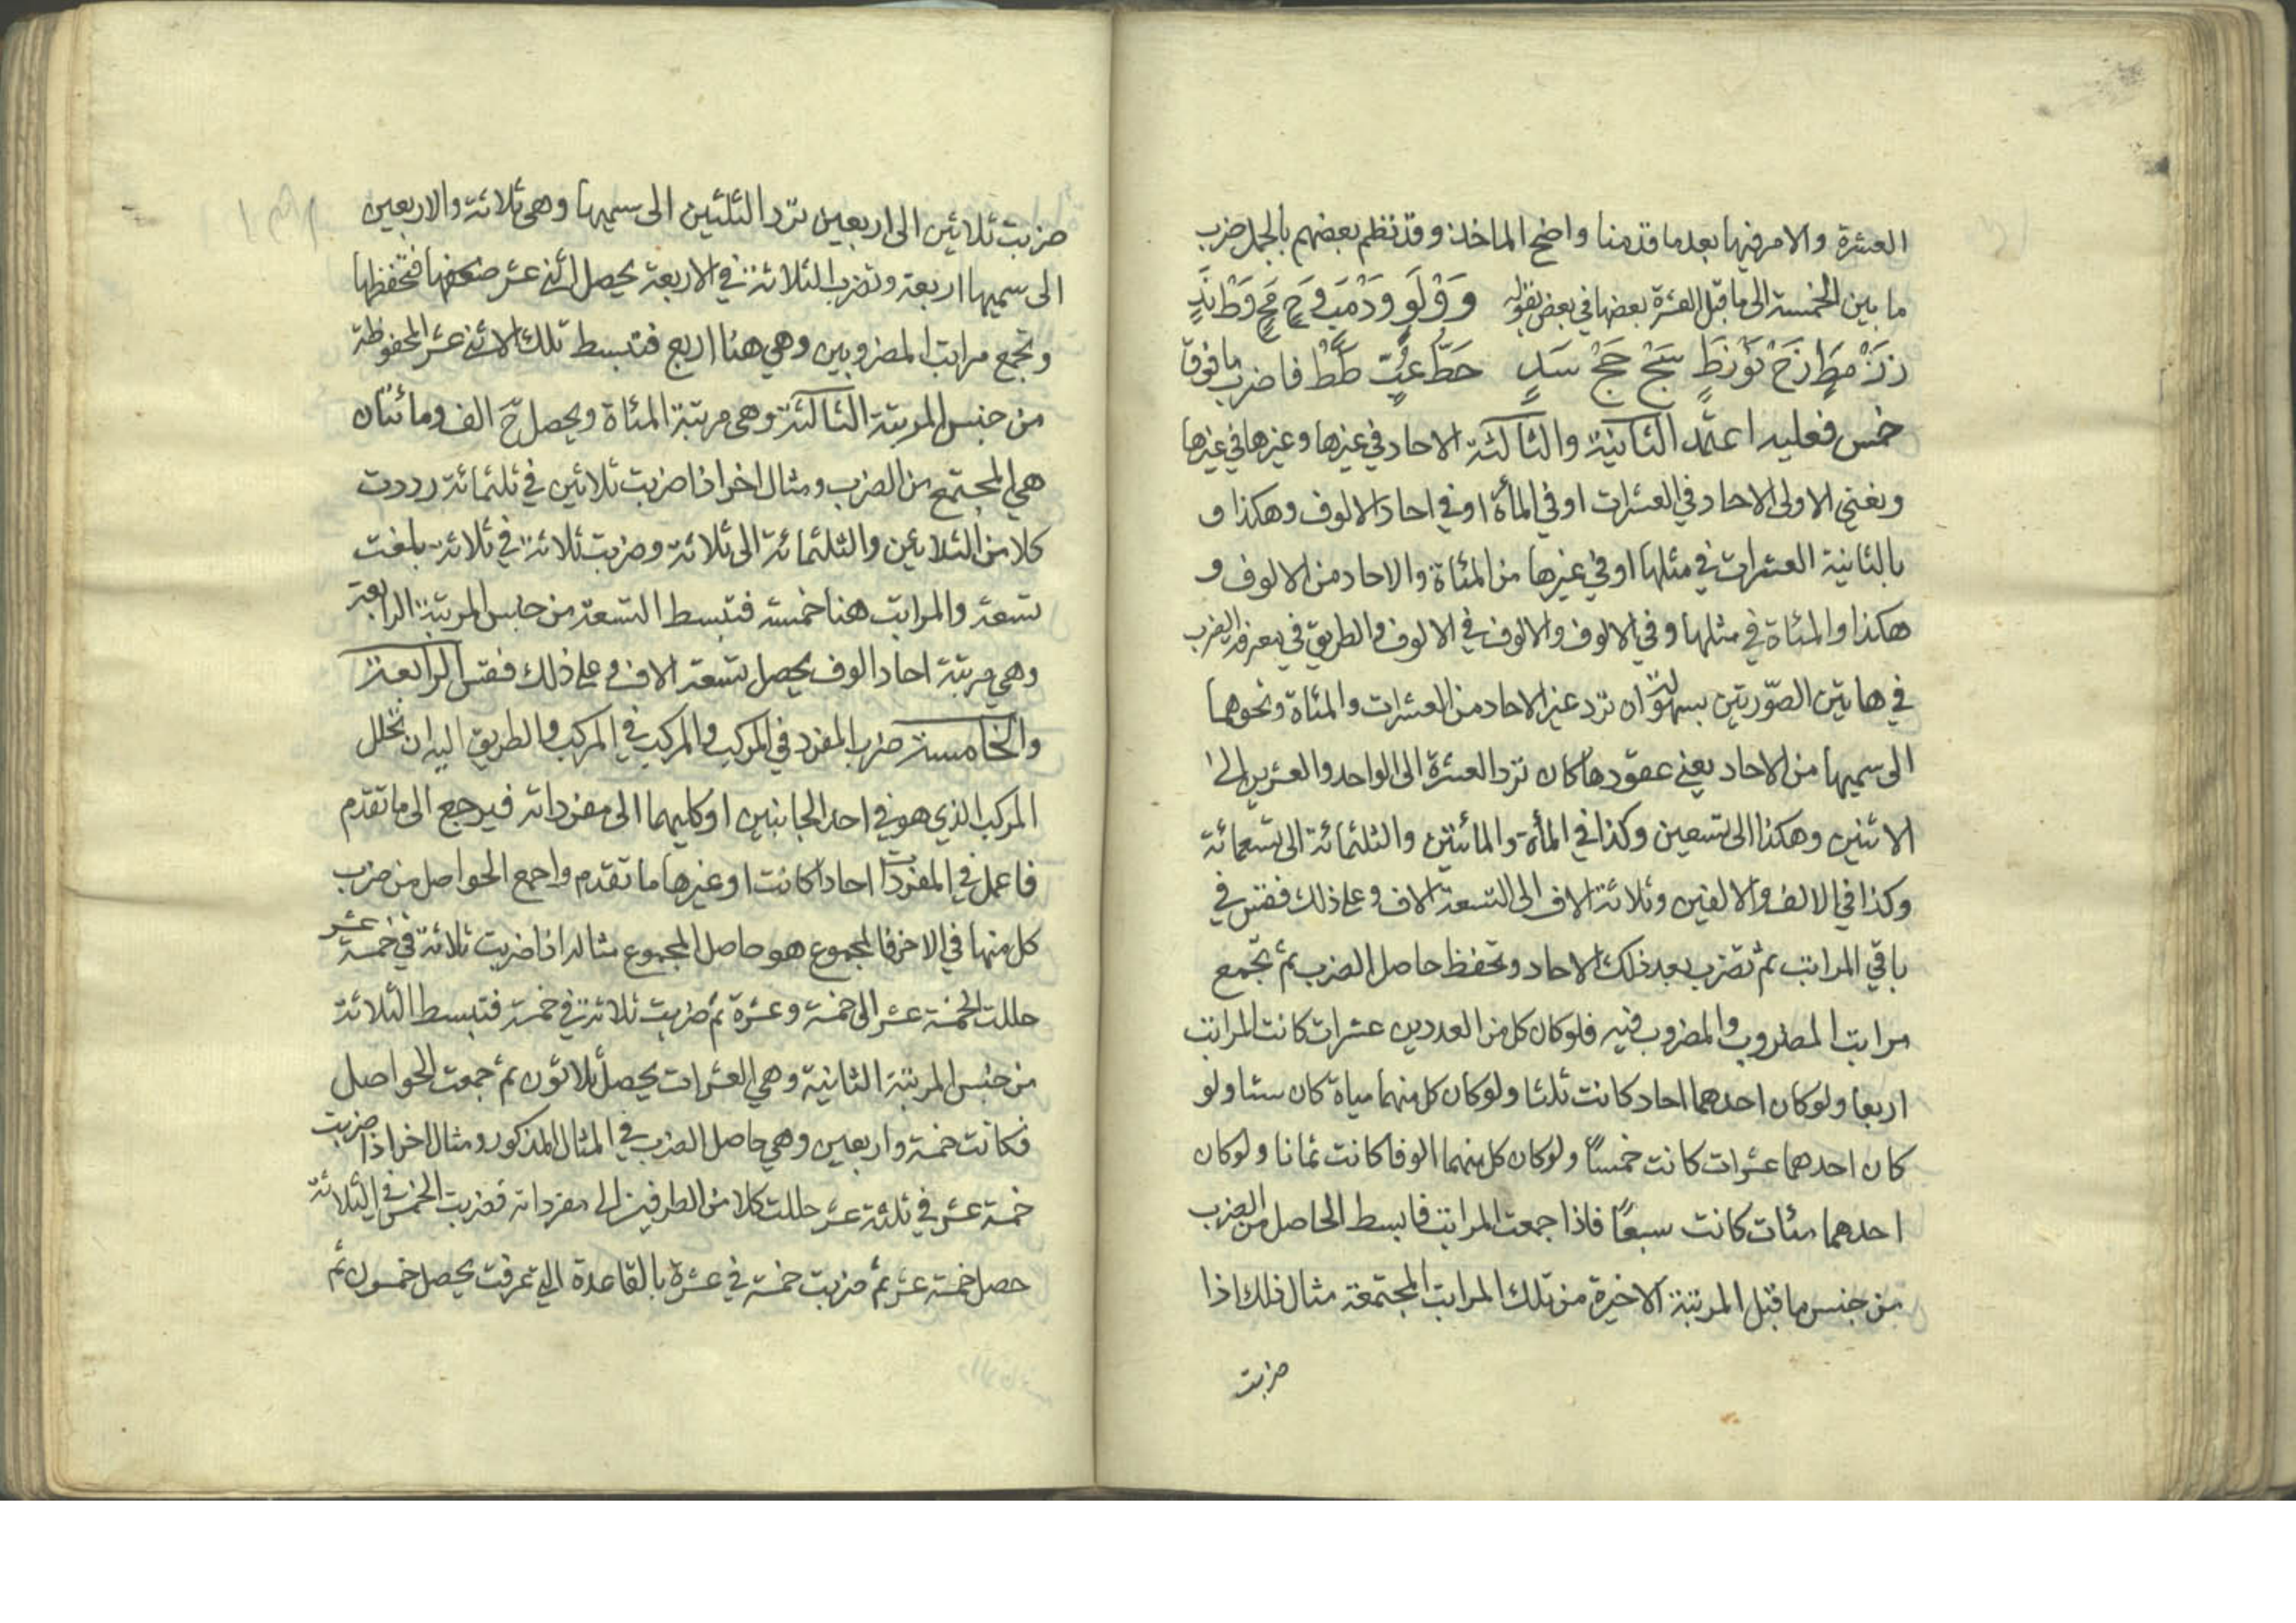 العشرة والامر فيها بعد ما قدمنا واضح الماخذ وقد نظم بعضهم بالجمل ضرب
ما بين الخمسة الى ما قبل العشرة بعضها في بعض بقوله
فاضرب ما فوق
خمس فعليه اعتمد الثانية والثالثة الاحاد في غيرها وغيرها في غيرها
ونعني الاولى الاحاد في العشرات او في المأة او في احاد الالوف وهكذا و
بالثانية العشرات في مثلها او في غيرها من المئاة والاحاد من الالوف و
هكذا والمئاة في مثلها وفي الالوف والالوف في الالوف والطريق في معرفة الضرب
في هاتين الصورتين بسهولة ان ترد غير الاحاد من العشرات والمئاة ونحوهما
الى سميها من الاحاد يعني عقودها كان ترد العشرة الى الواحد والعشرين الى
الاثنين وهكذا الى تسعين وكذا في المأة والمائتين والثلثمائة الى تسعمائة
وكذا في الالف والالفين وثلاثة الاف الى التسعة الاف وعلى ذلك فقس في
باقي المراتب ثم تضرب بعد ذلك الاحاد وتحفظ حاصل الضرب ثم تجمع
مراتب المضروب والمضروب فيه فلو كان كل من العددين عشرات كانت المراتب
اربعا ولو كان احدهما احاد كانت ثلثا ولو كان كل منهما مياة كان ستا ولو
كان احدهما عشرات كانت خمسا ولو كان كل منهما الوفا كانت ثمانا ولو كان
احدهما مئات كانت سبعا فاذا جمعت المراتب فابسط الحاصل من الضرب
من جنس ما قبل المرتبة الاخيرة من تلك المراتب المجتمعة مثال ذلك اذا
ضربت
ضربت ثلاثين الى اربعين ترد الثلثين الى سميها وهي ثلاثة والاربعين
الى سميها اربعة وتضرب الثلاثة في الاربعة يحصل اثنى عشر فتحفظها
وتجمع مراتب المضروبين وهي هنا اربع فتبسط تلك الاثنى عشر المحفوظة
من جنس المرتبة الثالثة وهي مرتبة المئاة ويحصل ح الف ومائتان
هي المجتمع من الضرب ومثال اخر اذا ضربت ثلاثين في ثلثمائة رددت
كلا من الثلاثين والثلثمائة الى ثلاثة وضربت ثلاثة في ثلاثة بلغت
تسعة والمراتب هنا خمسة فتبسط التسعة من جنس المرتبة الرابعة
وهي مرتبة احاد الوف يحصل تسعة الاف وعلى ذلك فقس الرابعة
والخامسة ضرب المفرد في المركب والمركب في المركب والطريق اليه ان تحلل
المركب الذي هو في احد الجانبين او كليهما الى مفرداته فيرجع الى ما تقدم
فاعمل في المفردات احادا كانت او غيرها ما تقدم واجمع الحواصل من ضرب
كل منها في الاخر فالمجموع هو حاصل المجموع مثاله اذا ضربت ثلاثة في خمسة عشر
حللت الخمسة عشر الى خمسة وعشرة ثم ضربت ثلاثة في خمسة فتبسط الثلاثة
من جنس المرتبة الثانية وهي العشرات يحصل ثلاثون ثم جمعت الحواصل
فكانت خمسة واربعين وهي حاصل الضرب في المثال المذكور ومثال اخر اذا ضربت
خمسة عشر في ثلثة عشر حللت كلا من الطرفين الى مفرداته فضربت الخمس في الثلاثة
حصل خمسة عشر ثم ضربت خمسة في عشرة بالقاعدة التي عرفت يحصل خمسون ثم